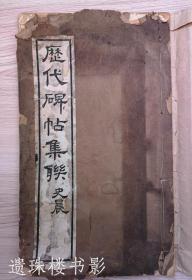 歷代碑帖集聯
史晨
遺珠楼书影